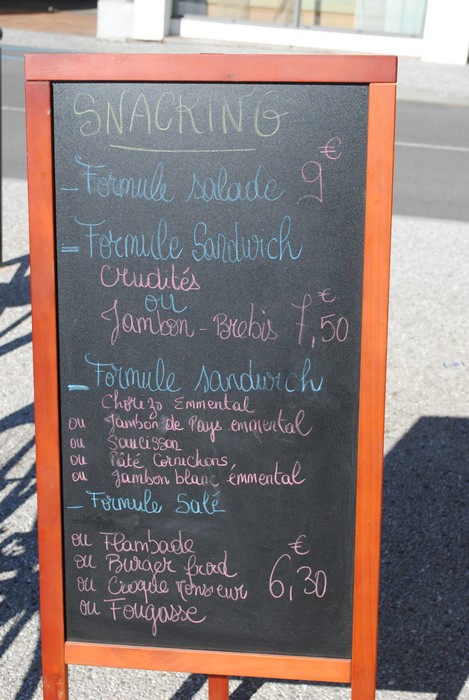 SNACKING
- Formule salade 9€
- Formule Sandwich
Crudités
ou
Jambon - Brebis 7,50€
- Formule sandwich
Chorizo Emmental
ou Jambon de Pays emmental
ou Saucisson
ou Pâté Cornichons
ou Jambon blanc émmental
- Formule Salé
ou Flambade
ou Burger froid
ou Croque Monsieur 6,30€
ou Fougasse